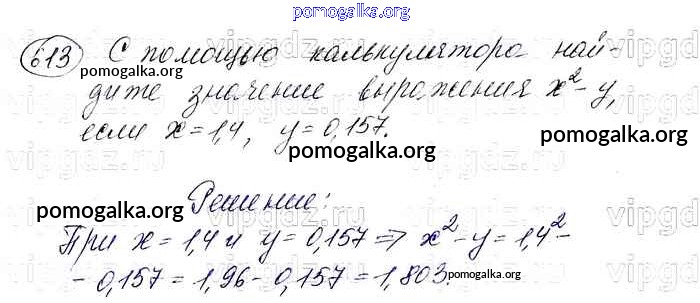 pomogalka.org
613 С помощью калькулятора най-
pomogalka.org
дите значение выражения x² - y,
если x = 1,4, y = 0,157.
pomogalka.org
pomogalka.org
Решение:
pomogalka.org
При x = 1,4 и y = 0,157 => x² - y = 1,4² -
- 0,157 = 1,96 - 0,157 = 1,803.
pomogalka.org